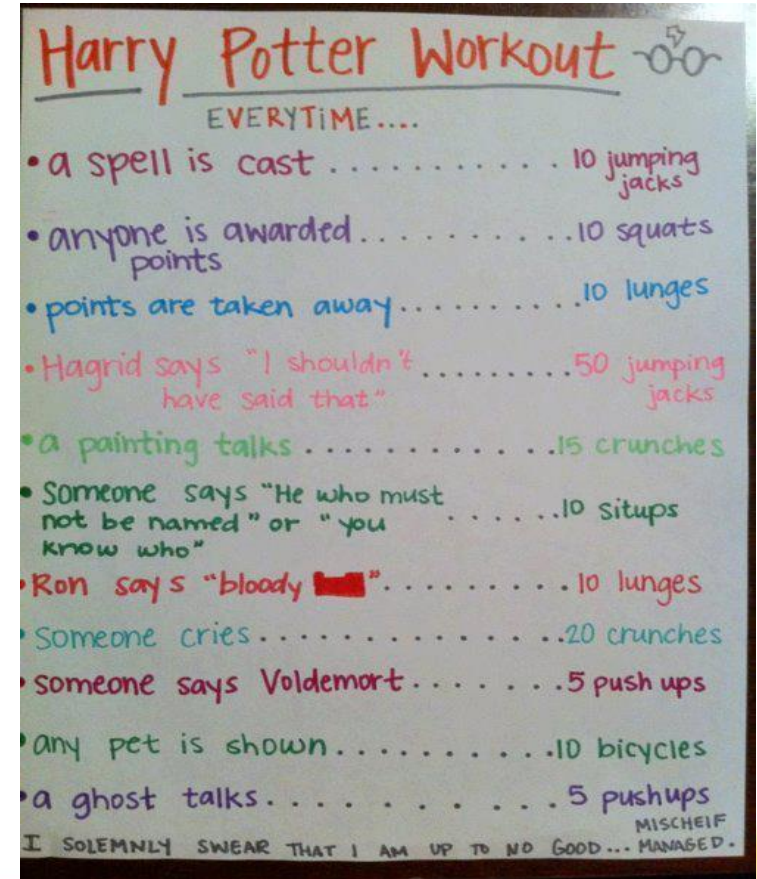 Harry Potter Workout
EVERYTIME....
• a spell is cast ........... 10 jumping
jacks
• anyone is awarded .......... 10 squats
points
• points are taken away .......... 10 lunges
• Hagrid says "I shouldn't ......... 50 jumping
have said that" jacks
• a painting talks ............ 15 crunches
• Someone says "He who must
not be named" or "you ...... 10 situps
know who"
• Ron says "bloody ".......... 10 lunges
• Someone cries............... 20 crunches
• someone says Voldemort....... 5 push ups
• any pet is shown.......... 10 bicycles
• a ghost talks........... 5 pushups
I SOLEMNLY SWEAR THAT I AM UP TO NO GOOD... MISCHEIF
MANAGED.